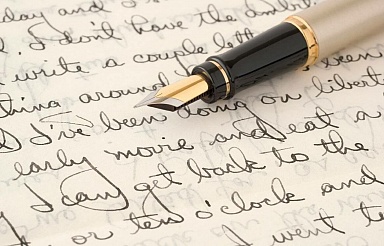 day and
I don't have the
write a couple
thing around
I've been doing on
early movie and eat a
I can get back to the
or ten o'clock and
I went to